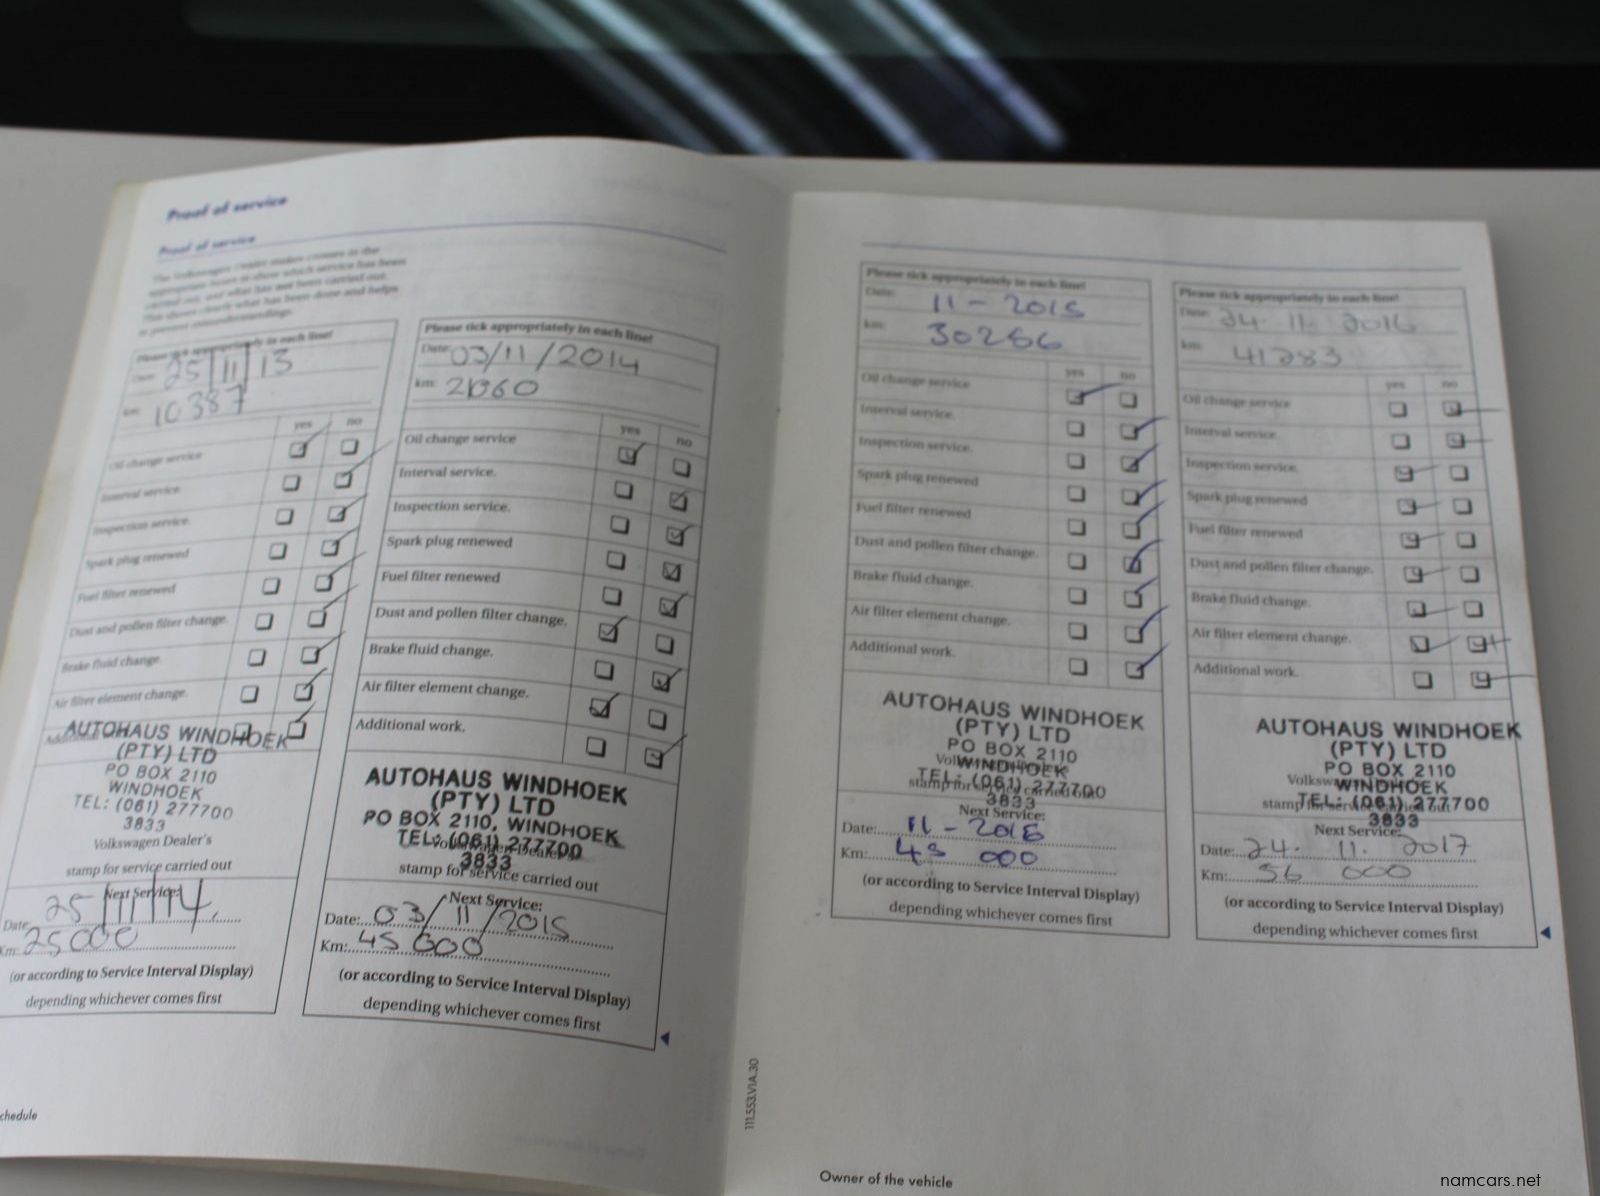 Proof of service
Proof of service
The Volkswagen Dealer makes crosses in the
appropriate boxes to show which service has been
carried out and what has not been carried out.
This shows clearly what has been done and helps
to prevent misunderstandings.
Please tick appropriately in each line!
Date: 25/11/13
km: 10387
yes no
Oil change service
Interval service.
Inspection service.
Spark plug renewed
Fuel filter renewed
Dust and pollen filter change.
Brake fluid change.
Air filter element change.
AUTOHAUS WINDHOEK
(PTY) LTD
PO BOX 2110
WINDHOEK
TEL: (061) 277700
3833
Volkswagen Dealer's
stamp for service carried out
Next Service:
Date: 25/11/14
Km: 25000
(or according to Service Interval Display)
depending whichever comes first
Please tick appropriately in each line!
Date: 03/11/2014
km:
yes no
Oil change service
Interval service.
Inspection service.
Spark plug renewed
Fuel filter renewed
Dust and pollen filter change.
Brake fluid change.
Air filter element change.
Additional work.
AUTOHAUS WINDHOEK
(PTY) LTD
PO BOX 2110, WINDHOEK
TEL: (061) 277700
Volkswagen Dealer's
3833
stamp for service carried out
Next Service:
Date: 03/11/2015
Km: 45 000
(or according to Service Interval Display)
depending whichever comes first
chedule
Please tick appropriately in each line!
Date: 11 - 2015
km: 30256
yes no
Oil change service
Interval service.
Inspection service.
Spark plug renewed
Fuel filter renewed
Dust and pollen filter change.
Brake fluid change.
Air filter element change.
Additional work.
AUTOHAUS WINDHOEK
(PTY) LTD
PO BOX 2110
WINDHOEK
TEL: (061) 277700
stamp for service carried out
3833
Next Service:
Date: 11 - 2016
Km: 45 000
(or according to Service Interval Display)
depending whichever comes first
Please tick appropriately in each line!
Date: 24. 11. 2016
km: 41283
yes no
Oil change service
Interval service.
Inspection service.
Spark plug renewed
Fuel filter renewed
Dust and pollen filter change.
Brake fluid change.
Air filter element change.
Additional work.
AUTOHAUS WINDHOEK
(PTY) LTD
PO BOX 2110
WINDHOEK
TEL: (061) 277700
stamp for service carried out
3833
Next Service:
Date: 24. 11. 2017
Km: 56 000
(or according to Service Interval Display)
depending whichever comes first
111.553.V1A.30
Owner of the vehicle
namcars.net